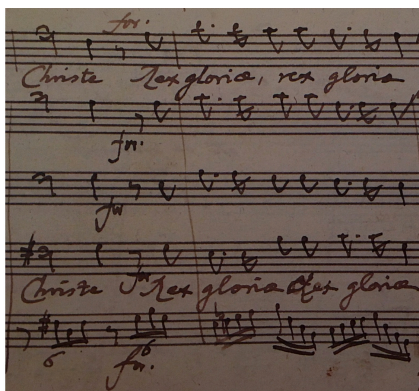 for.
Christe Rex gloriæ, rex gloriæ
for.
for
for
Christe Rex gloriæ Rex gloriæ
6 6
for.